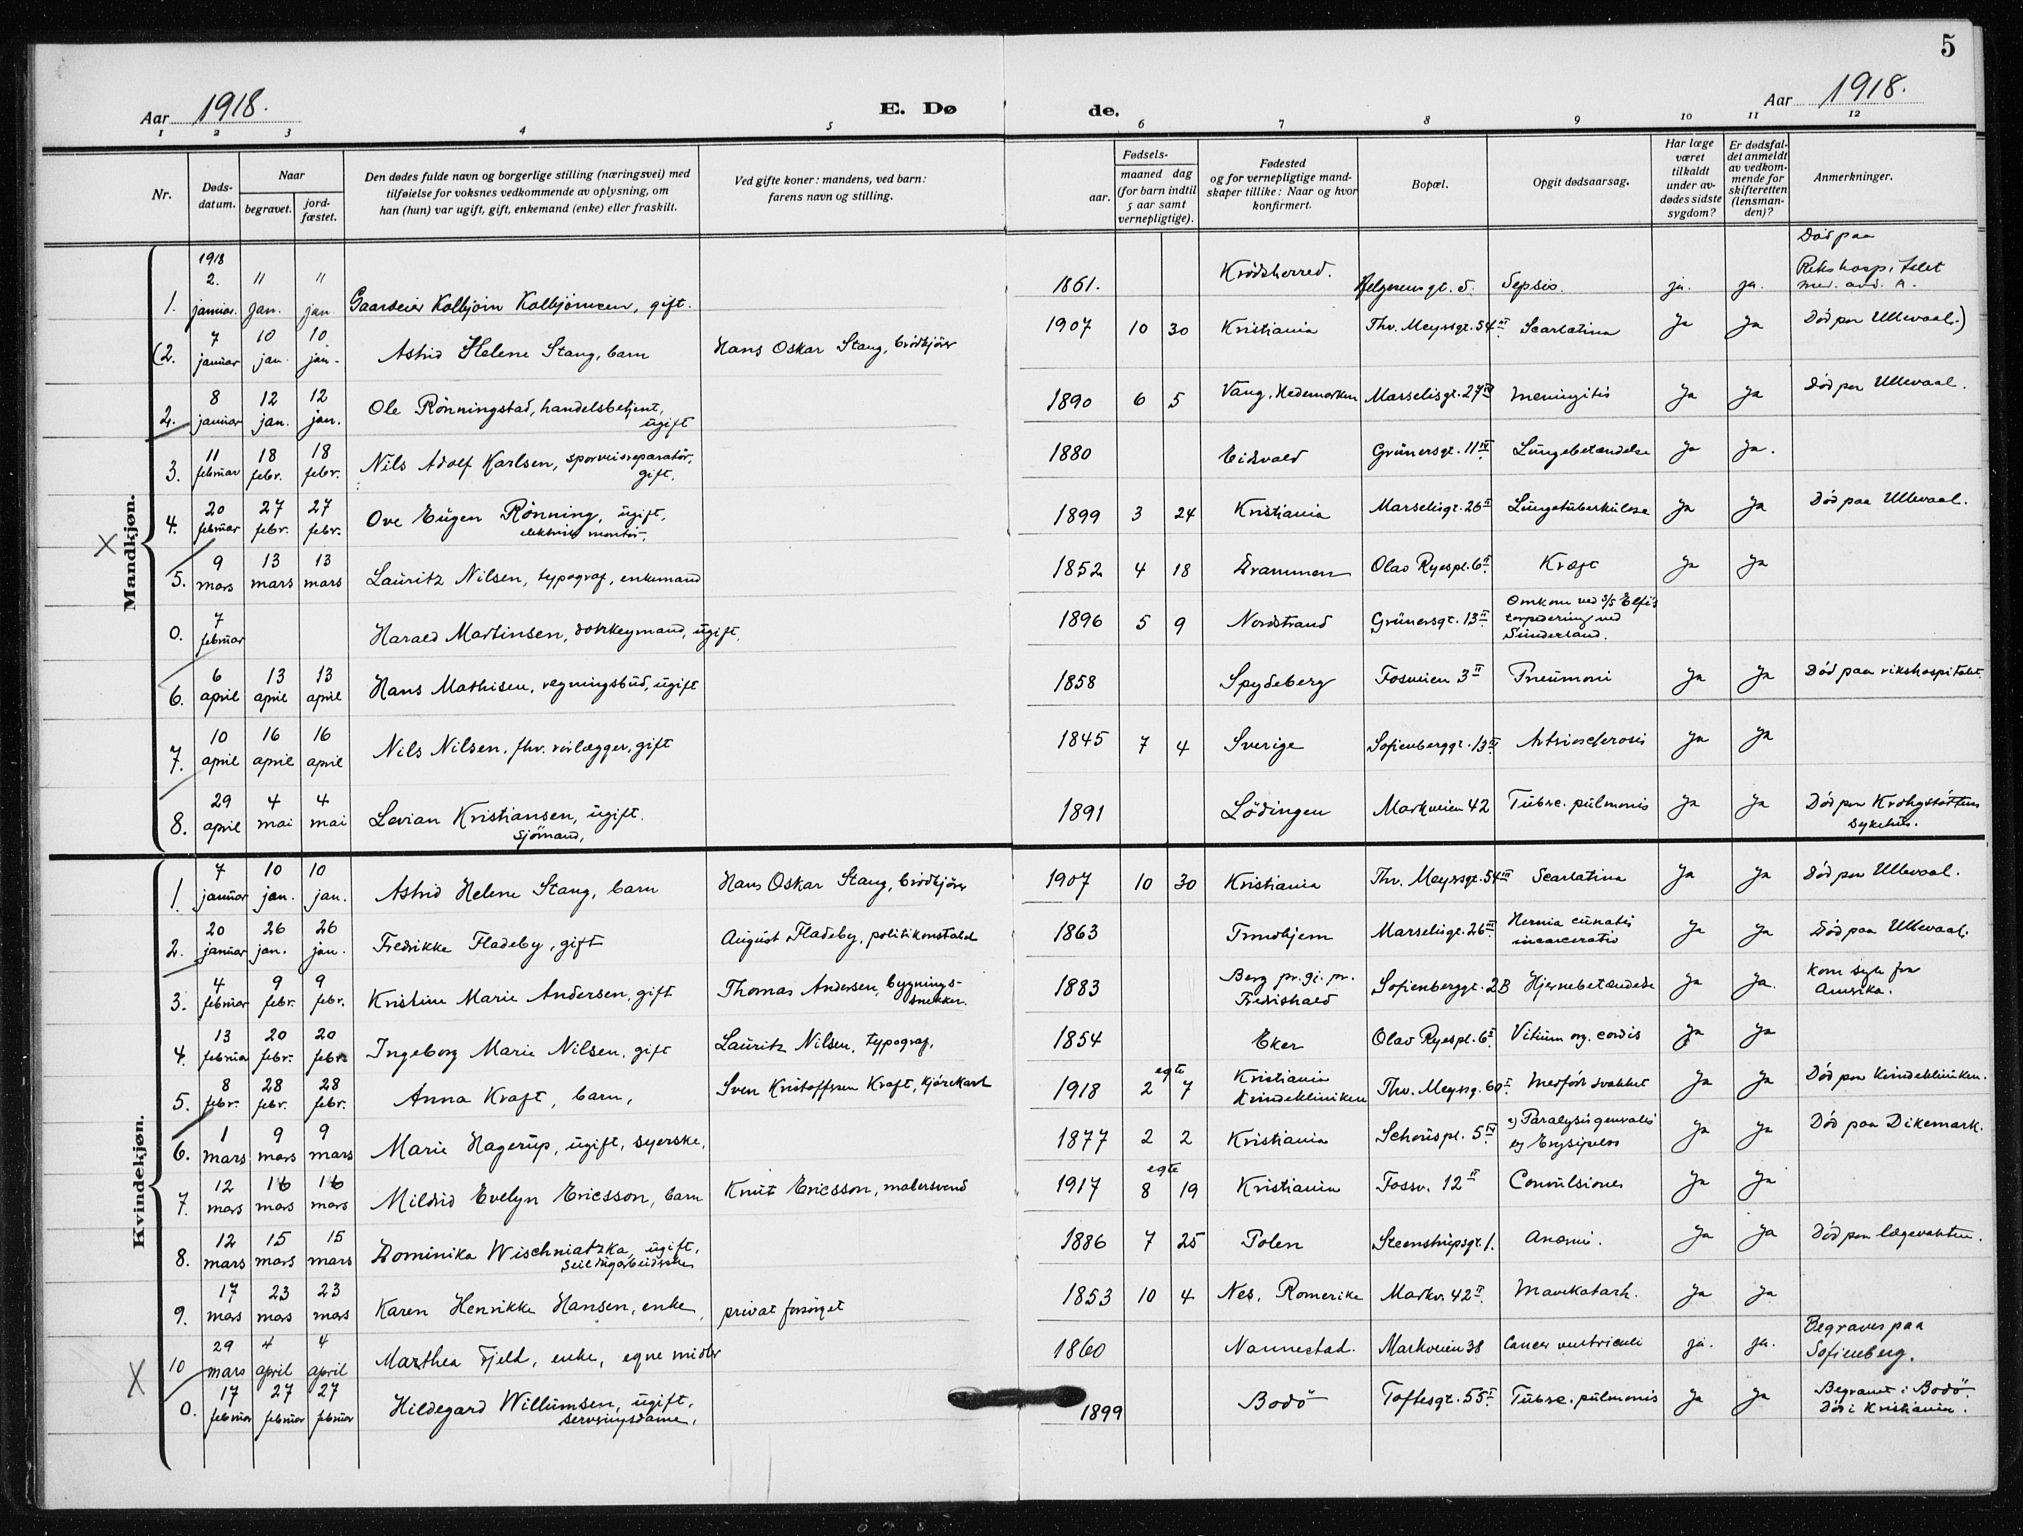 5
Aar 1918.
E. Dø
de.
Aar 1918.
1 2 3 4 5 6 7 8 9 10 11 12
Nr.
Døds-
datum.
Naar
begravet.
jord-
fæstet.
Den dødes fulde navn og borgerlige stilling (næringsvei) med
tilføielse for voksnes vedkommende av oplysning, om
han (hun) var ugift, gift, enkemand (enke) eller fraskilt.
Ved gifte koner: mandens, ved barn:
farens navn og stilling.
Fødsels-
aar.
maaned dag
(for barn indtil
5 aar samt
vernepligtige).
Fødested
og for vernepligtige mand-
skaper tillike: Naar og hvor
konfirmert.
Bopæl.
Opgit dødsaarsag.
Har læge
været
tilkaldt
under av-
dødes sidste
sygdom?
Er dødsfal-
det anmeldt
av vedkom-
mende for
skifteretten
(lensman-
den)?
Anmerkninger.
Mandkjøn.
1918
1. 2. januar. " jan. " jan. Gaardeier Kolbjørn Kolbjørnsen, gift. 1861. Krødsherred. Helgesensgt. 5. Sepsis. ja. ja. Død paa
Rikshosp.
med. avd. A.
(2. 7 januar 10 jan. 10 jan. Astrid Helene Stang, barn Hans Oskar Stang, brødkjører 1907 10 30 Kristiania Thv. Meyersgt. 54 III Scarlatina Ja Ja Død paa Ullevaal.)
2. 8 januar 12 jan. 12 jan. Ole Rønningstad, handelsbetjent,
ugift 1890 6 5 Vang, Hedemarken Marselisgt. 27 IV Meningitis Ja Ja Død paa Ullevaal.
3. 11 februar 18 febr. 18 febr. Nils Adolf Karlsen, sporveisreparatør,
gift. 1880 Eidsvold Grünersgt. 11 IV Lungebetændelse Ja Ja.
4. 20 februar 27 febr. 27 febr. Ove Eugen Rønning, ugift,
elektrisk montør. 1899 3 24 Kristiania Marselisgt. 26 II Lungetuberkulose Ja Ja Død paa Ullevaal.
X
5. 9 mars 13 mars 13 mars Lauritz Nilsen, typograf, enkemand 1852 4 18 Drammen Olav Ryespl. 6 II Kræft Ja Ja
0. 7 februar Harald Martinsen, donkeymand, ugift. 1896 5 9 Nordstrand Grünersgt. 13 II Omkom ved S/S Elfis
torpedering ved
Sunderland.
6. 6 april 13 april 13 april Hans Mathisen, regningsbud, ugift 1858 Spydeberg Fosveien 3 II Pneumoni Ja Ja Død paa rikshospitalet.
7. 10 april 16 april 16 april Nils Nilsen, fhv. rørlægger, gift 1845 7 4 Sverige Sofienberggt. 13 III Artriosclerosis Ja Ja
8. 29 april 4 mai 4 mai Levian Kristiansen, ugift.
Sjømand, 1891 Lødingen Markveien 42 Tubrc. pulmonis Ja Ja Død paa Krohgstøttens
sykehus.
Kvindekjøn.
1. 7 januar 10 jan. 10 jan. Astrid Helene Stang, barn Hans Oskar Stang, brødkjører 1907 10 30 Kristiania Thv. Meyersgt. 54 III Scarlatina Ja Ja Død paa Ullevaal.
2. 20 januar 26 jan. 26 jan. Fredrikke Fladeby, gift August Fladeby, politikonstabel 1863 Trondhjem Marselisgt. 26 III Hernia
incarceratio Ja Ja Død paa Ullevaal.
3. 4 februar 9 febr. 9 febr. Kristine Marie Andersen, gift Thomas Andersen, bygnings-
snekker. 1883 Berg pr.gj. pr.
Fredrikshald Sofienberggt. 2B Hjernebetændelse Ja Ja. Kom syk fra
Amerika.
4. 13 februar 20 febr. 20 febr. Ingeborg Marie Nilsen, gift Lauritz Nilsen, typograf. 1854 Eker Olav Ryespl. 6 II Vitium org. cordis Ja Ja
5. 8 febr. 28 febr. 28 febr. Anna Kraft, barn, Sven Kristoffersen Kraft, kjørekarl 1918 egte 2 7 Kristiania
Kvindekliniken Thv. Meyersg. 60 I Medfødt svakhet Ja Ja Død paa Kvindekliniken.
6. 1 mars 9 mars 9 mars Marie Hagerup, ugift, syerske. 1877 2 2 Kristiania Schouspl. 5 IV Paralysis generalis
Erysipelas Ja Ja Død paa Dikemark.
7. 12 mars 16 mars 16 mars Mildrid Evelyn Ericsson, barn Knut Ericsson, malersvend 1917 egte 8 19 Kristiania Fossv. 12 II Convulsiones Ja Ja
8. 12 mars 15 mars 15 mars Dominika Wischniatzka, ugift, 1886 7 25 Polen Steenstrupsgt. 1. Anæmi. Ja Ja Død paa lægevakten.
9. 17 mars 23 mars 23 mars Karen Henrikke Hansen, enke, privat forsørget 1853 10 4 Nes, Romerike Markv. 42 II Mavekatarh. Ja Ja
10 29 mars 4 april 4 april Marthea Fjeld, enke, egne midler 1860 Nannestad. Markveien 38 Cancer ventriculi ja. ja. Begraves paa
Sofienberg.
X
0. 17 februar 27 februar 27 februar Hildegard Willumsen, ugift,
serveringsdame, 1899 Bodø Toftesgt. 55 I Tubrc. pulmonis Ja Ja Begravet i Bodø.
Død i Kristiania.